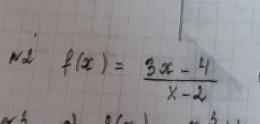 №2 f(x) = \frac{3x - 4}{x - 2}